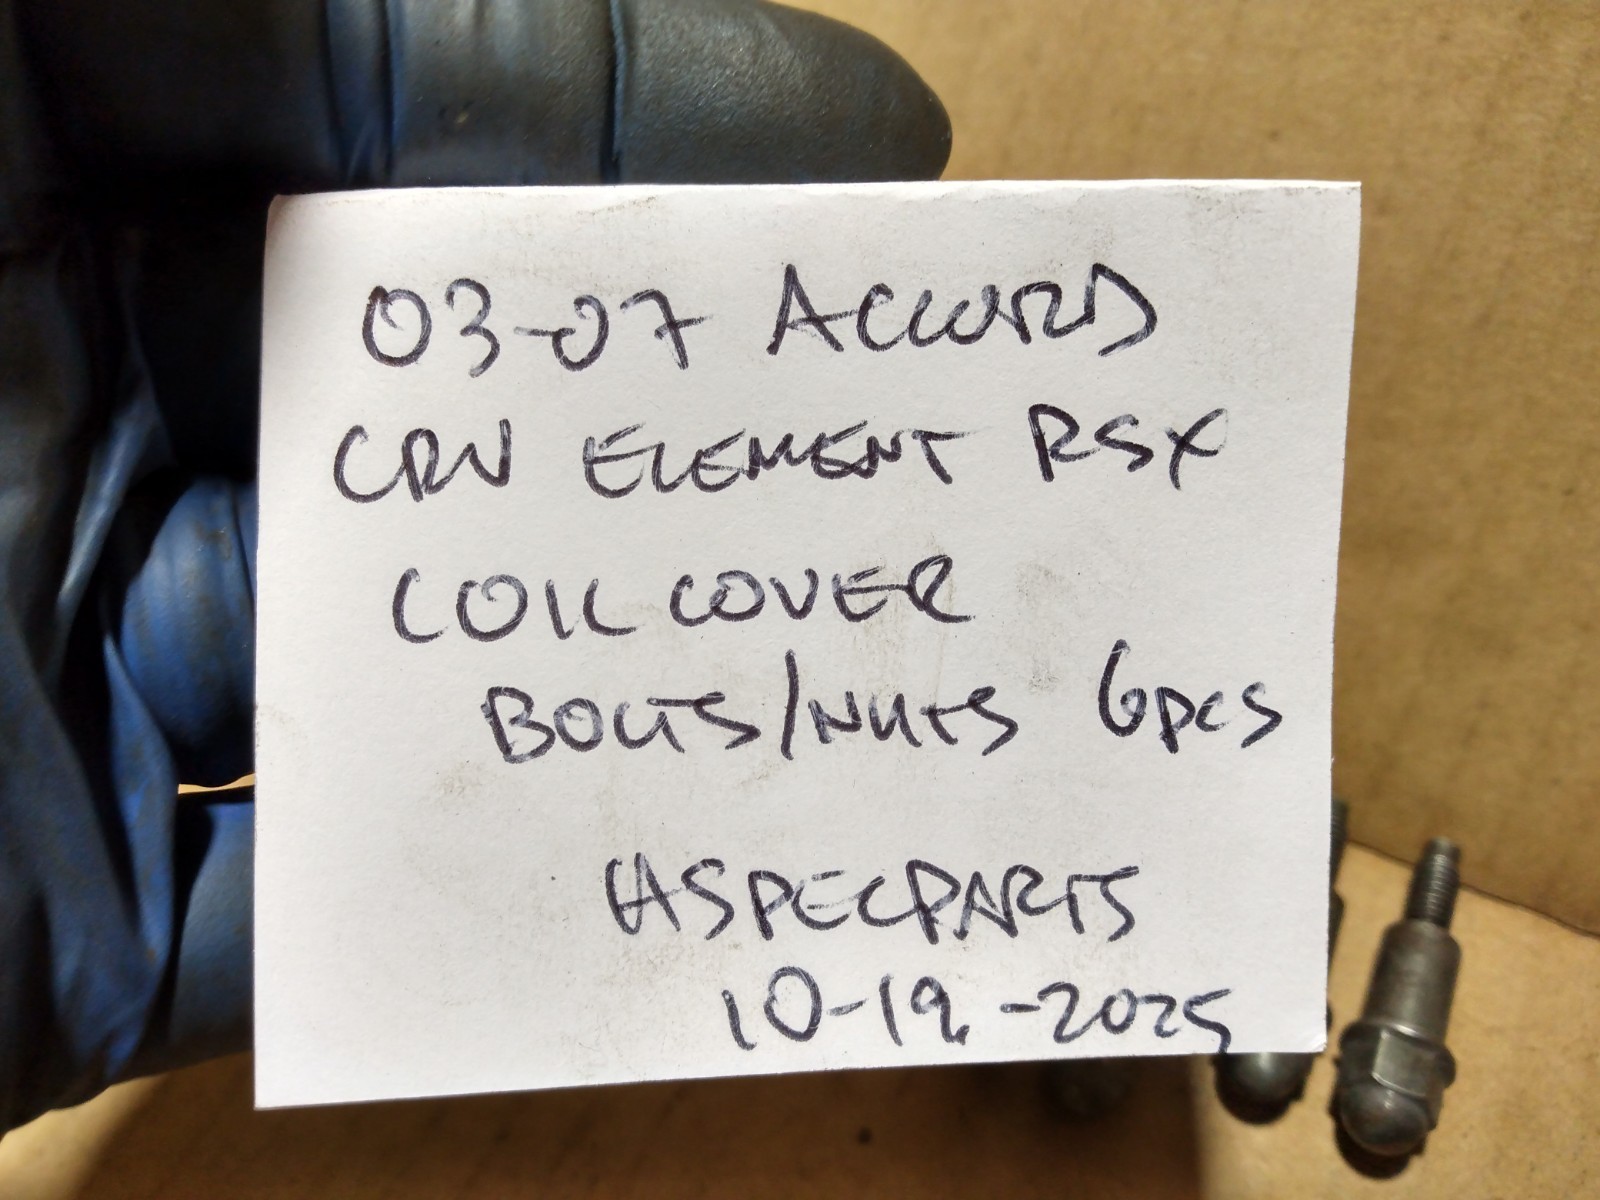 03-07 ACCORD
CRV ELEMENT RSX
COIL COVER
BOLTS/NUTS 6PCS
HSPECPARTS
10-19-2025